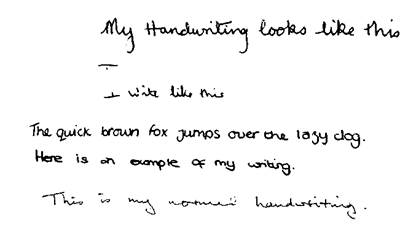 My Handwriting looks like this
I write like this
The quick brown fox jumps over the lazy dog.
Here is an example of my writing.
This is my normal handwriting.